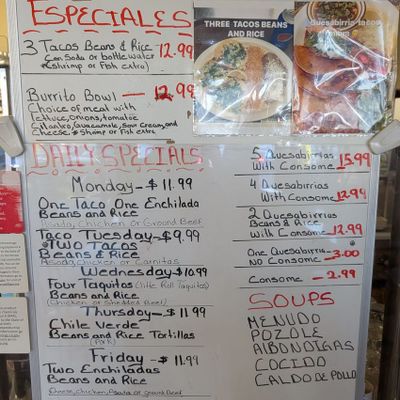 ESPECIALES
3 Tacos Beans & Rice 12.99
Can Soda or bottle water
(shrimp or Fish extra)
Burrito Bowl — 12.99
Choice of meat with
lettuce, onions, tomatoe
Cilantro, Guacamole, Sour Cream, and
Cheese, & Shrimp or Fish extra
THREE TACOS BEANS
AND RICE
Quesabirria taco
DAILY SPECIALS
Monday - $11.99
One Taco One Enchilada
Beans and Rice
Asada, Chicken or Ground Beef
Taco Tuesday - $9.99
Two Tacos
Beans & Rice
Asada, Chicken or Carnitas
Wednesday - $10.99
Four Taquitos (little Roll Taquitos)
Beans and Rice
(Chicken or Shredded Beef)
Thursday - $11.99
Chile Verde
Beans and Rice Tortillas
(Pork)
Friday - $11.99
Two Enchiladas
Beans and Rice
Cheese, Chicken, Asada or Ground Beef
5 Quesabirrias
With Consome 15.99
4 Quesabirrias
With Consome 12.99
2 Quesabirrias
Beans & Rice
With Consome 12.99
One Quesabirria
No Consome — 3.00
Consome — 2.99
SOUPS
MENUDO
POZOLE
ALBONDIGAS
COCIDO
CALDO DE POLLO